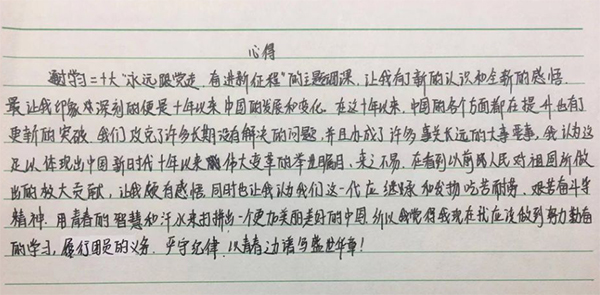 心得
通过学习二十大"永远跟党走,奋进新征程"的主题团课,让我有了新的认识和全新的感悟.
最让我印象深刻的便是十年以来中国的发展和变化.在这十年以来,中国的各个方面都在提升也有了
更新的突破.我们攻克了许多长期没有解决的问题,并且办成了许多事关长远的大事要事,我认为这
足以体现出中国新时代十年以来伟大变革的举世瞩目,来之不易,在看到以前人民对祖国所做
出的较大贡献,让我颇有感悟,同时也让我认为我们这一代应继承和发扬吃苦耐劳,艰苦奋斗等
精神.用青春的智慧和汗水来打拼出一个更加美丽美好的中国.所以我觉得我现在就应该做到努力勤奋
的学习,履行团员的义务,严守纪律,以青春之语写盛世华章!